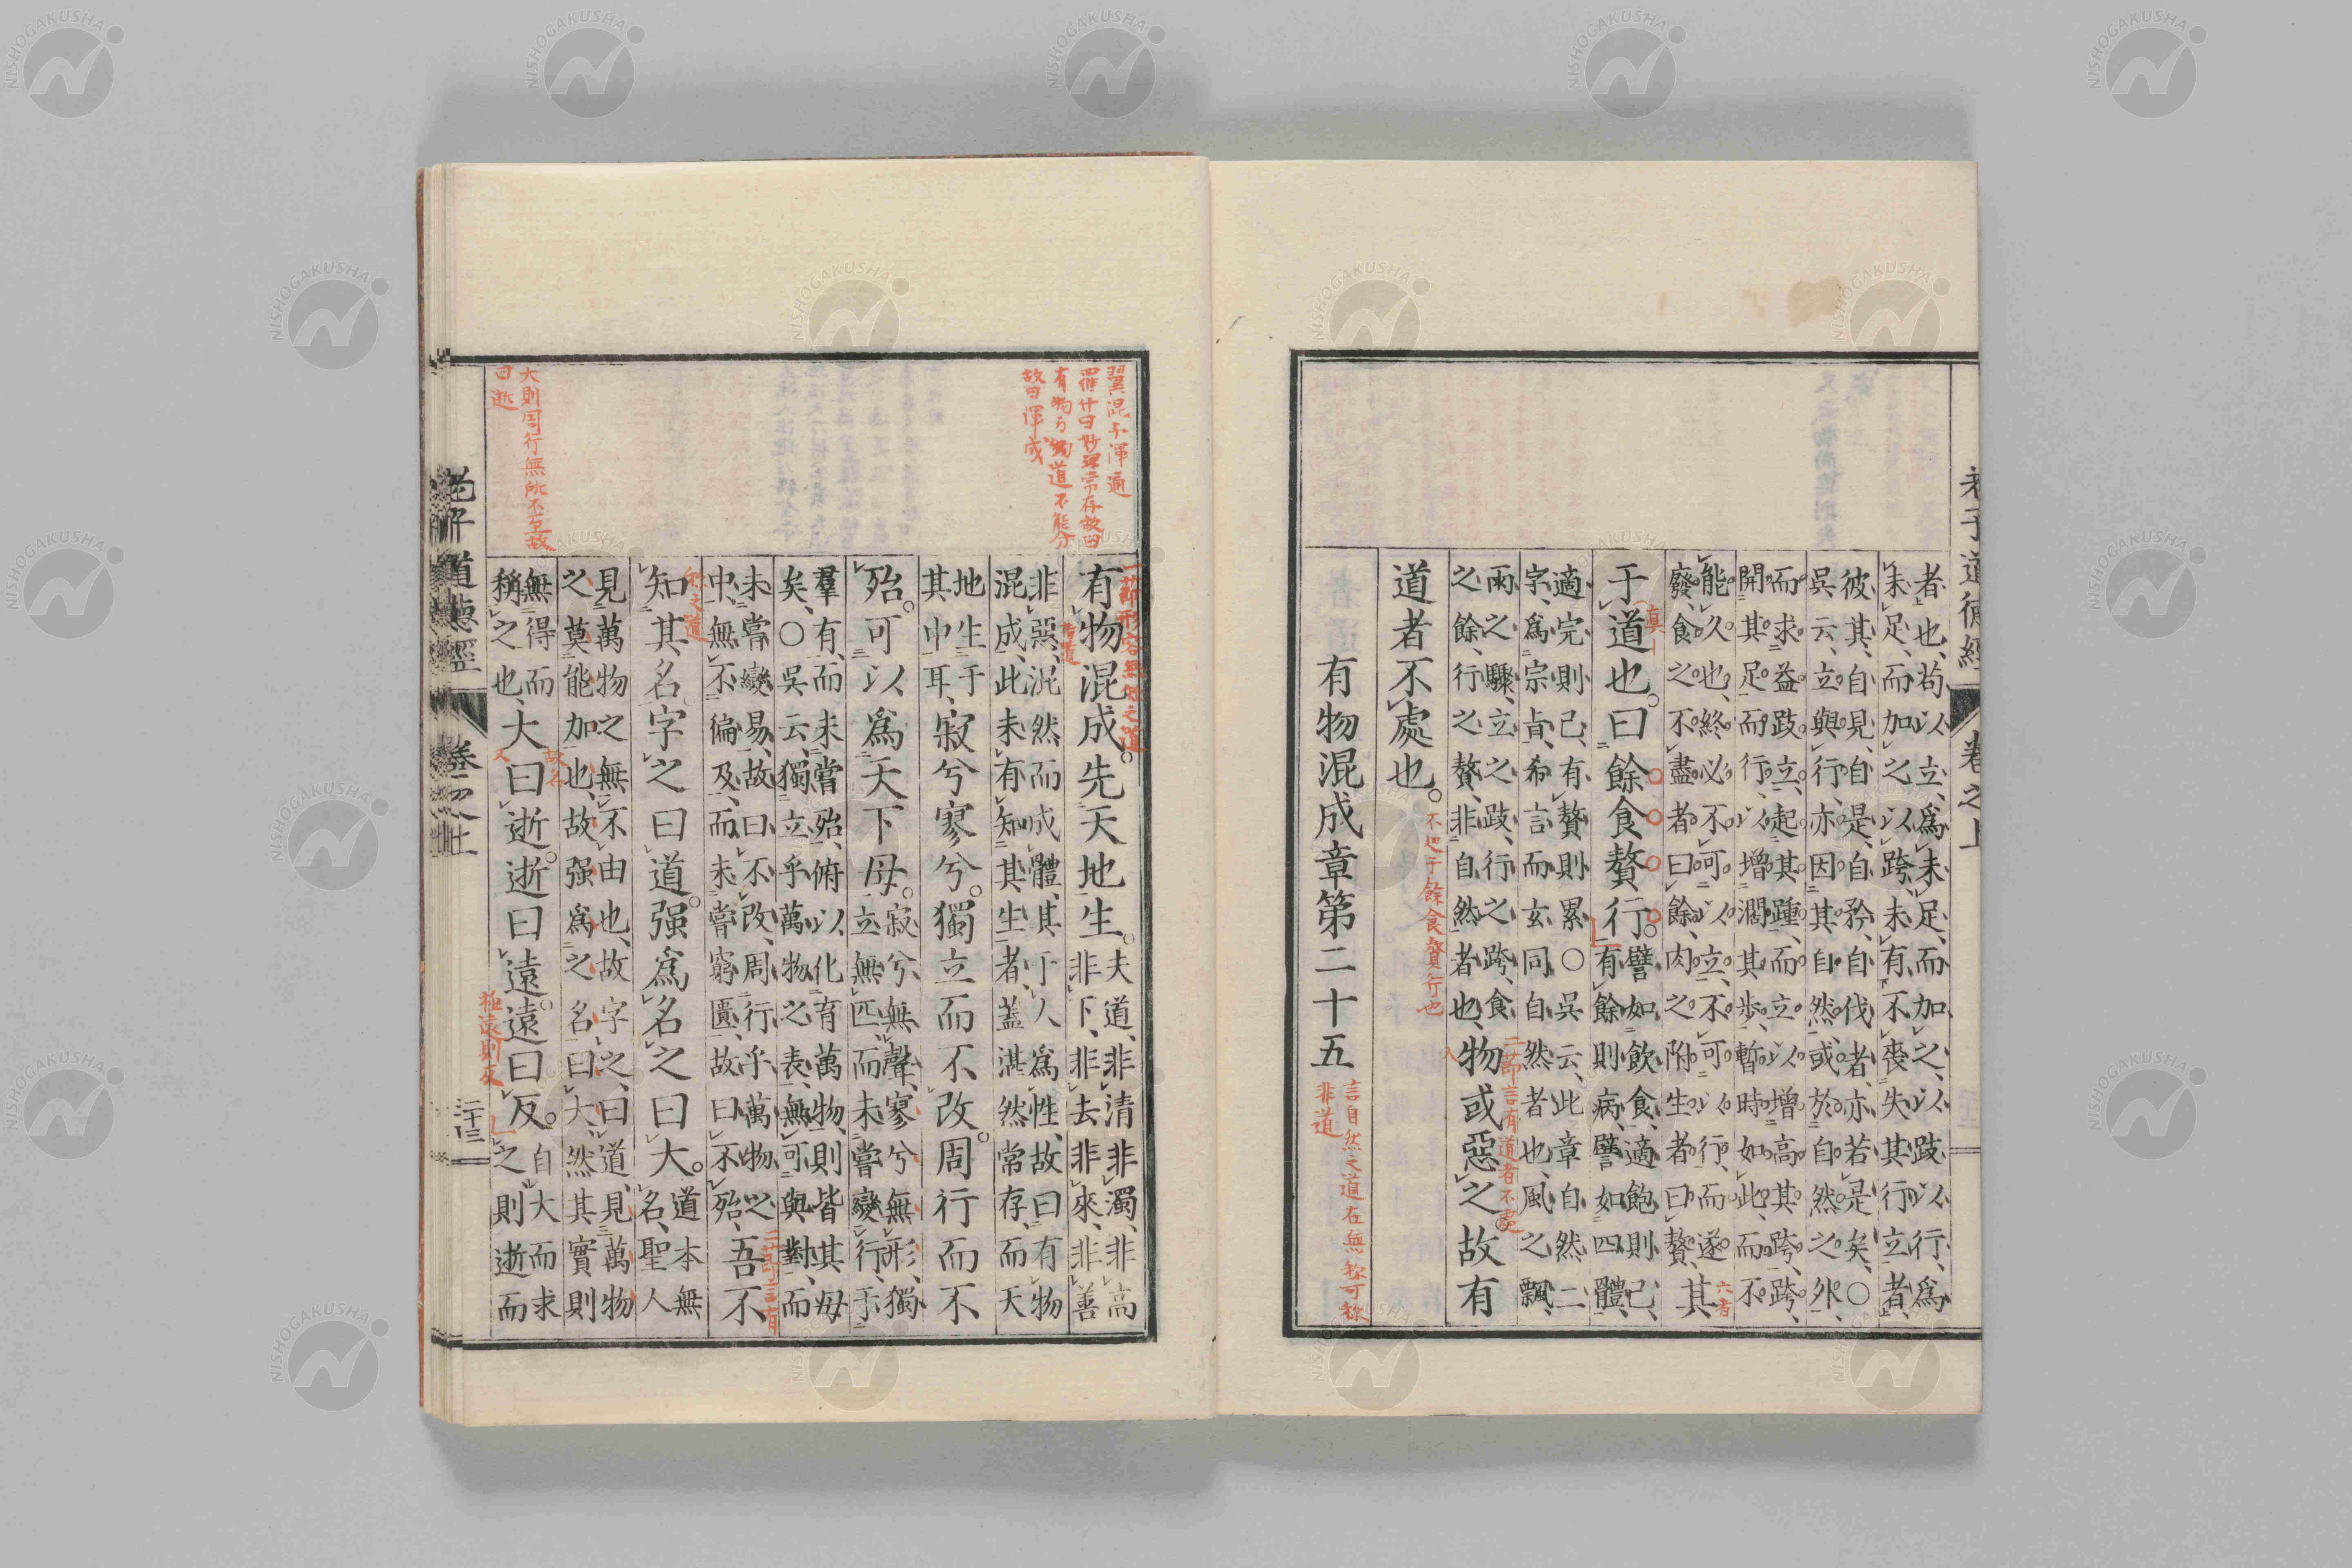 老子道德經
卷之上
者也、苟以立、爲未足、而加之、以跂以行、爲
未足、而加之、以跨、未有不喪失其行立者、
彼其自見、自是、自矜、自伐者、亦若是矣、○
吳云、立與行、亦因其自然、或於自然之外、
而求益、跂立、起其踵、而立以增高其跨、跨
開其足而行、以增濶其歩、暫時如此而不
能久也、終必不可以立、不可以行、而遂
廢、食之不盡者曰餘、肉之附生者曰贅、
其
六者
于道也。曰餘食贅行。
譬如飲食、適飽則已、
有餘則病、譬如四體
適完則已、有贅則累○吳云、此章自然二
字、爲宗㫖、希言而玄同自然者也、風之飄、
雨之驟、立之跂、行之跨、食
之餘、行之贅、非自然者也、
物或惡之。故有
二節言有道者不處
道者不處也。
不処于餘食贅行也
有物混成章第二十五
言自然之道在無稱可稱
非道
翼混亦渾通
羅什曰妙理常存故曰
有物万物道不能分
故曰渾成
有物混成。先天地生。
一節形容無名之道
指道
夫道、非清非濁、非高
非下、非去非來、非善
非惡、混然而成體、其于人爲性、故曰有物
混成、此未有知其生者、蓋湛然常存、而天
地生于
其中耳、
寂兮寥兮。獨立而不改。周行而不
殆。可以爲天下母。
寂兮無聲、寥兮無形、獨
立無匹、而未嘗變、行于
羣有、而未嘗殆、俯以化育萬物、則皆其母
矣、○吳云、獨立乎萬物之表、無可與對、而
未嘗變易、故曰不改、周行乎萬物之
中、無不徧及、而未嘗窮匱、故曰不殆、
吾不
二節言有
名之道
知其名。字之曰道。强爲名之曰大。
道本無
名、聖人
見萬物之無不由也、故字之、曰道、見萬物
之莫能加也、故强爲之名曰大、然其實則
無得而
稱之也、
大曰逝。逝曰遠。遠曰反。
自大而求
之則逝而
故名
又
極遠則反
大則周行無所不至故
曰逝
老子道德經
卷之上
二十三